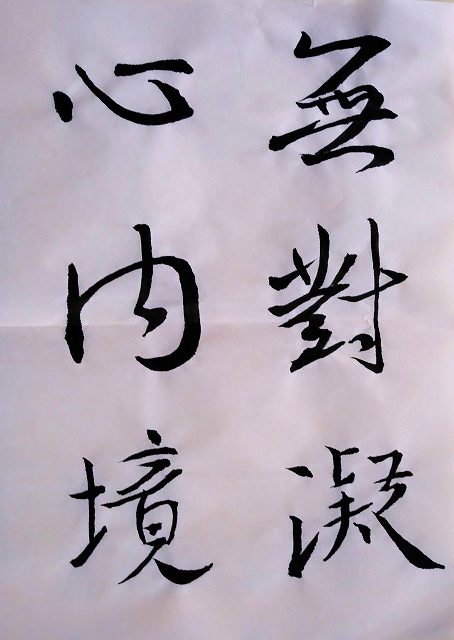 無對凝
心內境